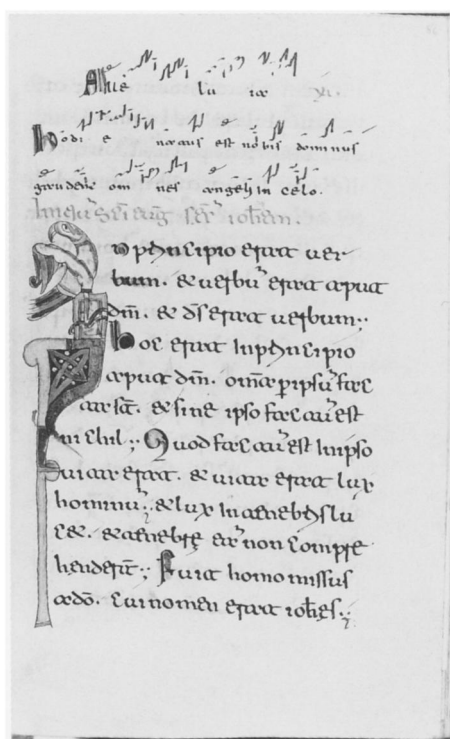 Alle lu ia
hodi e natus est nobis dominus
gaudent om nes angeli in celo.
Initiū sc̄i eug̅ sec̄ ioh̄em.
In principio erat uer
bum. & uerbū erat aput
dm̄. & ds̄ erat uerbum;
hoc erat in principio
aput dm̄. om̄a p ipsū fac
ta st̄. & sine ipso factū est
nichil; Quod factū est in ipso
uita erat. & uita erat lux
hominū; & lux in tenebris lu
c&. & tenebrę eā non compre
henderūt; Fuit homo missus
a dō. cui nomen erat ioh̄es;